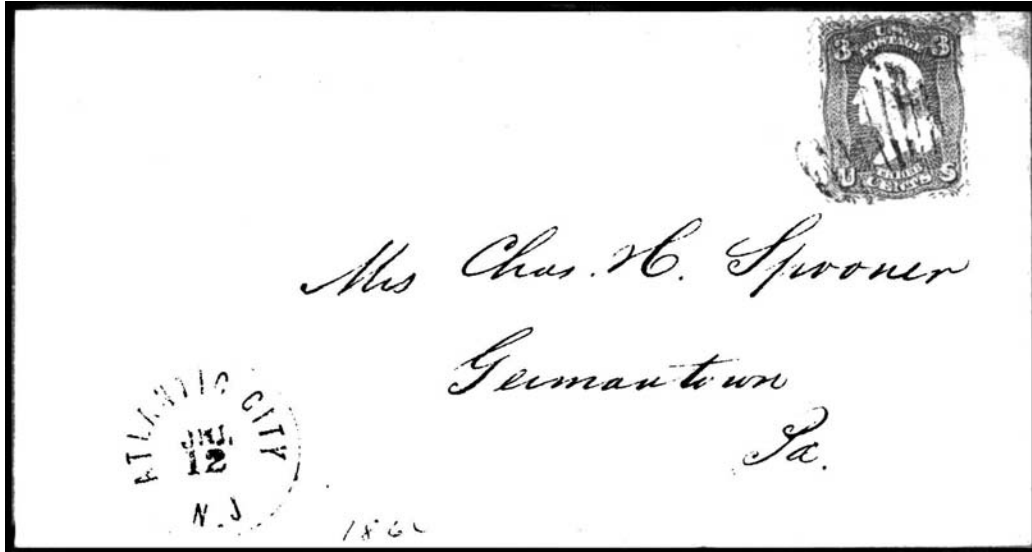 3 U.S. 3
POSTAGE
U THREE S
CENTS
Mrs Chas. H. Spooner
Germantown
Pa.
ATLANTIC CITY
12
N.J